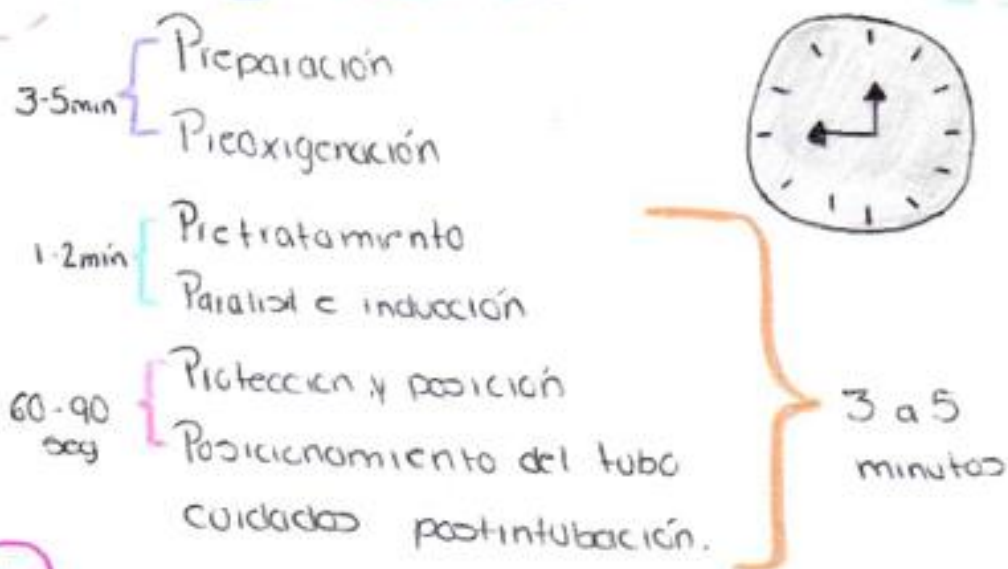 3-5min
Preparación
Preoxigenación
1-2min
Pretratamiento
Paralisis e inducción
60-90
seg
Protección y posición
Posicionamiento del tubo
cuidados postintubación.
3 a 5
minutos